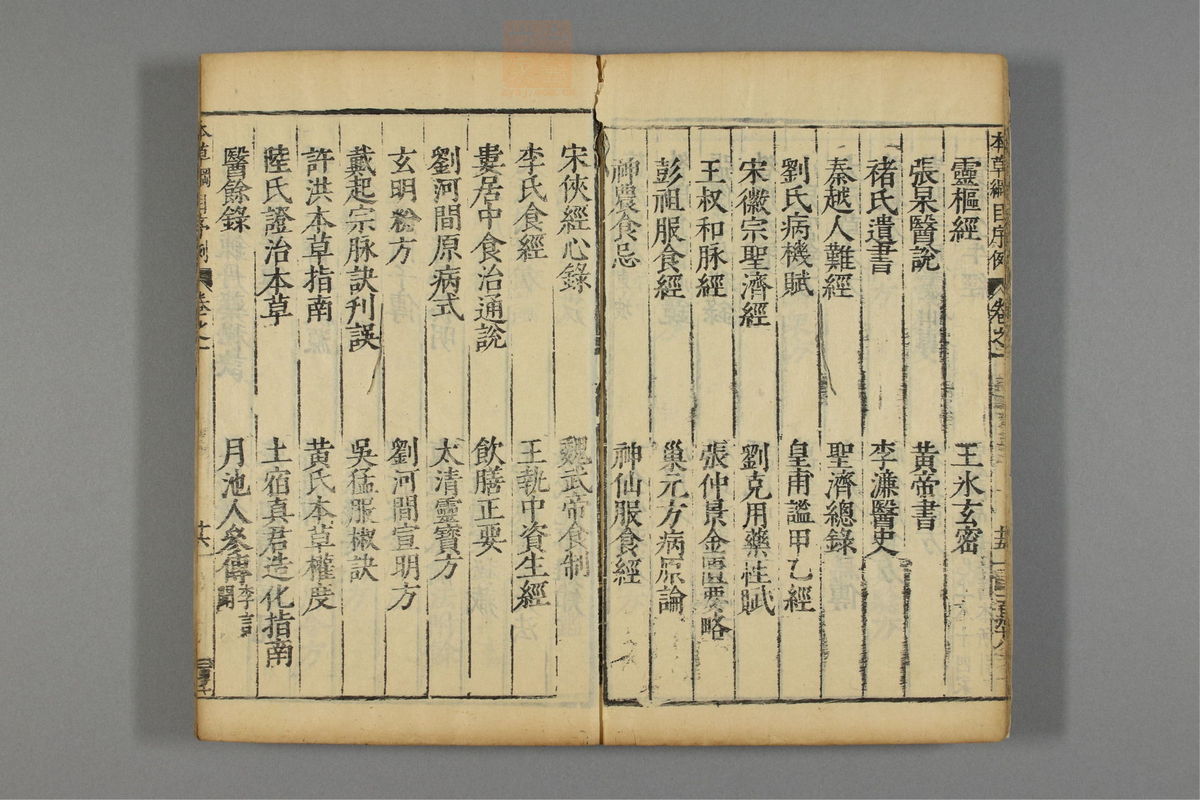 本草綱目序例 卷之一
靈樞經 王氷玄密
張杲醫說 黃帝書
褚氏遺書 李濂醫史
秦越人難經 聖濟總錄
劉氏病機賦 皇甫謐甲乙經
宋徽宗聖濟經 劉克用藥性賦
王叔和脉經 張仲景金匱要略
彭祖服食經 巢元方病原論
神農食忌 神仙服食經
宋俠經心錄 魏武帝食制
李氏食經 王執中資生經
婁居中食治通說 飲膳正要
劉河間原病式 太清靈寶方
玄明粉方 劉河間宣明方
戴起宗脉訣刋誤 吳猛服椒訣
許洪本草指南 黃氏本草權度
陸氏證治本草 土宿真君造化指南
醫餘錄 月池人參傳 李言聞
本草綱目序例 卷之一 十六